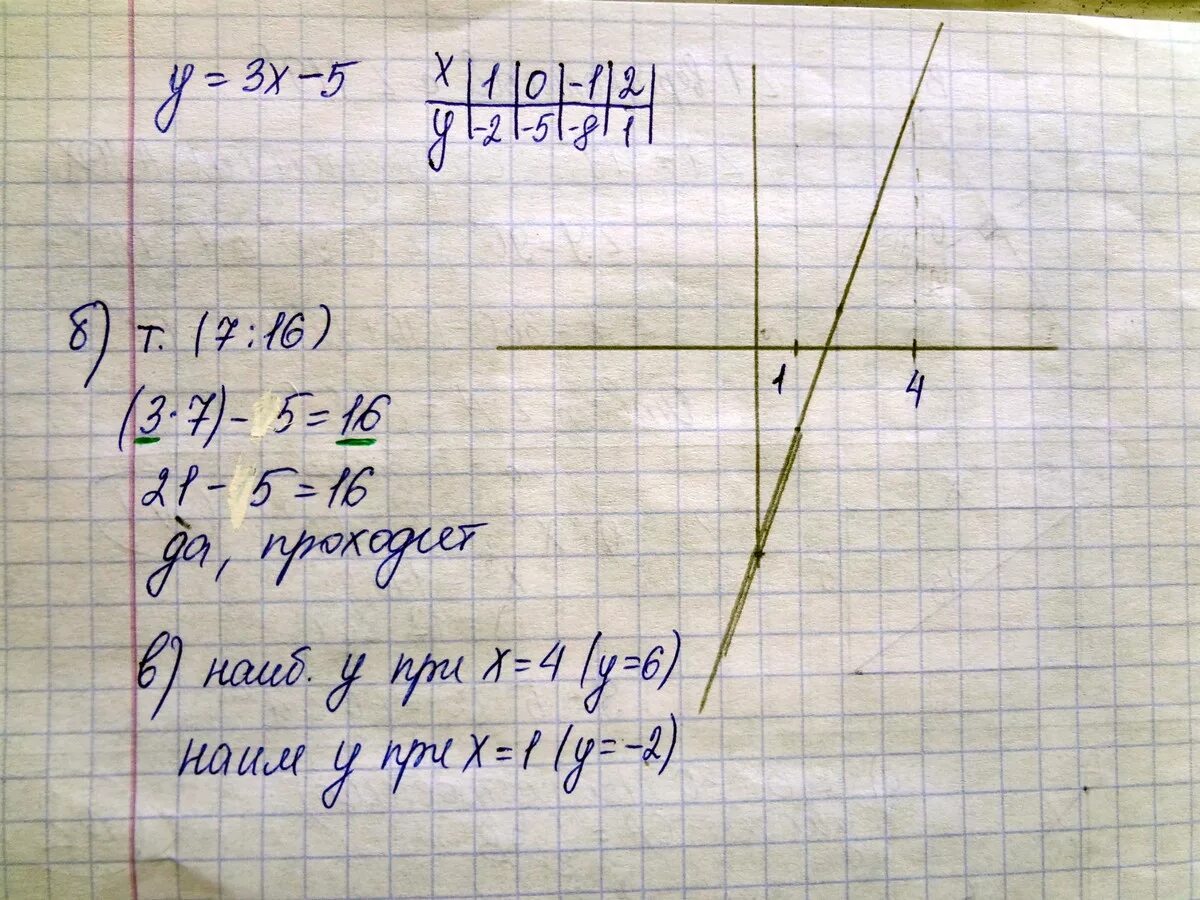 y = 3x - 5
x | 1 | 0 | -1 | 2 |
y | -2 | -5 | -8 | 1 |
1
4
б) т. (7 ; 16)
(3 · 7) - 5 = 16
21 - 5 = 16
да, проходит
в) наиб. y при x = 4 (y = 6)
наим y при x = 1 (y = -2)